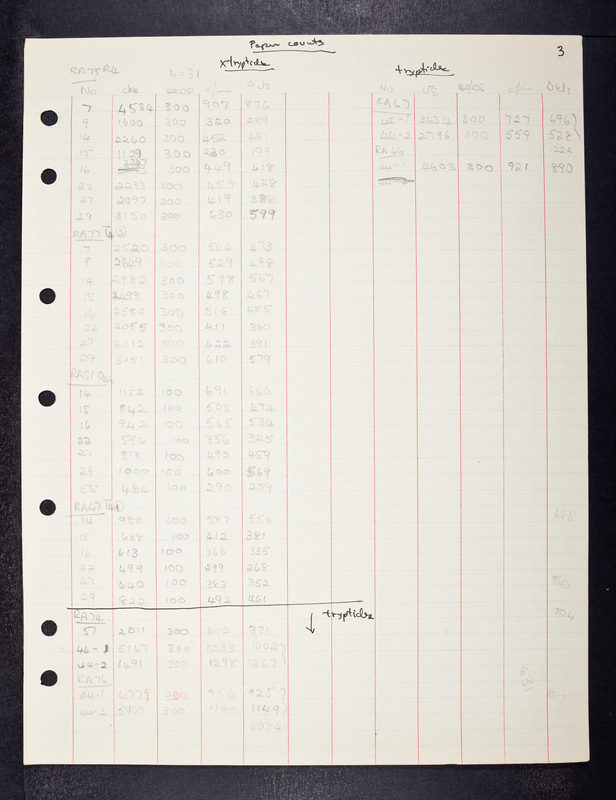 Paper counts
3
x-tryptides
tryptides
RA75R4 b=31
No cts secs c/m -b/s
7 4534 300 907 876
9 1600 300 320 289
14 2260 300 452 421
15 1149 300 230 199
16 2247 300 449 418
22 2293 300 459 428
27 2097 300 419 388
29 3150 300 630 599
RA77
7 2520 300 504 473
9 2649 300 529 498
14 2982 300 598 567
15 2493 300 498 467
16 2580 300 516 485
22 2055 300 411 380
27 2112 300 422 391
29 3051 300 610 579
RA51
14 1152 100 691 660
15 842 100 505 474
16 942 100 565 534
22 596 100 356 325
27 818 100 490 459
29 1000 100 600 569
55 484 100 290 259
RA67
14 980 100 587 556
15 688 100 412 381
16 613 100 366 335
22 499 100 299 268
27 640 100 383 352
29 822 100 492 461
↓ tryptides
RA74
5 2011 300 402 371
44-1 5167 300 1033 1002
44-2 6491 300 1298 1267
RA76
44-1 4779 300 956 925
44-2 5900 300 1180 1149
2074
No cts secs c/m
RA47
44-1 3634 300 727 696
44-2 2796 300 559 528
1224
RA66
44-1 4603 300 921 890
44-2
631